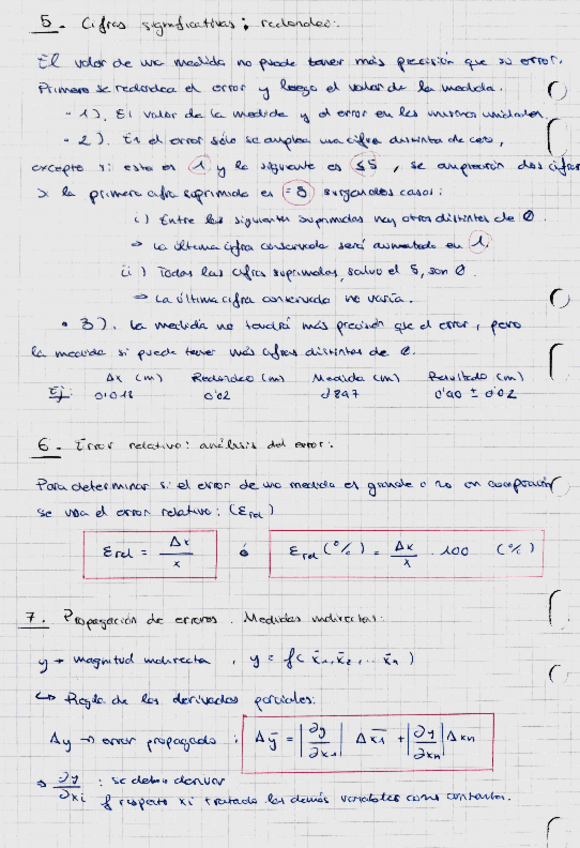 5. Cifras significativas; redondeo:
El valor de una medida no puede tener más precisión que su error.
Primero se redondea el error y luego el valor de la medida.
· 1). El valor de la medida y el error en las mismas unidades.
· 2). En el error sólo se emplea una cifra distinta de cero,
excepto si esta es 1 y la siguiente es ≤5, se emplearán dos cifras
> la primera cifra suprimida es =5 surgen dos casos:
i) Entre las siguientes suprimidas hay otras distintas de 0.
→ La última cifra conservada será aumentada en 1.
ii) Todas las cifras suprimidas, salvo el 5, son 0.
→ La última cifra conservada no varía.
· 3). La medida no tendrá más precisión que el error, pero
la medida si puede tener más cifras distintas de 0.
Δx (m) Redondeo (m) Medida (m) Resultado (m)
Ej: 0'018 0'02 0'897 0'90 ± 0'02
6. Error relativo: análisis del error:
Para determinar si el error de una medida es grande o no en comparación
se usa el error relativo: (Erel)
Erel = Δx/x ó Erel (%) = Δx/x · 100 (%)
7. Propagación de errores. Medidas indirectas:
y → magnitud indirecta, y = f(x̄1, x̄2, ... x̄n)
↳ Regla de las derivadas parciales:
Δy → error propagado: Δȳ = |∂y/∂x1| Δx̄1 + |∂y/∂xn| Δxn
→ ∂y/∂xi : se debe derivar
f respecto xi tratando las demás variables como constantes.